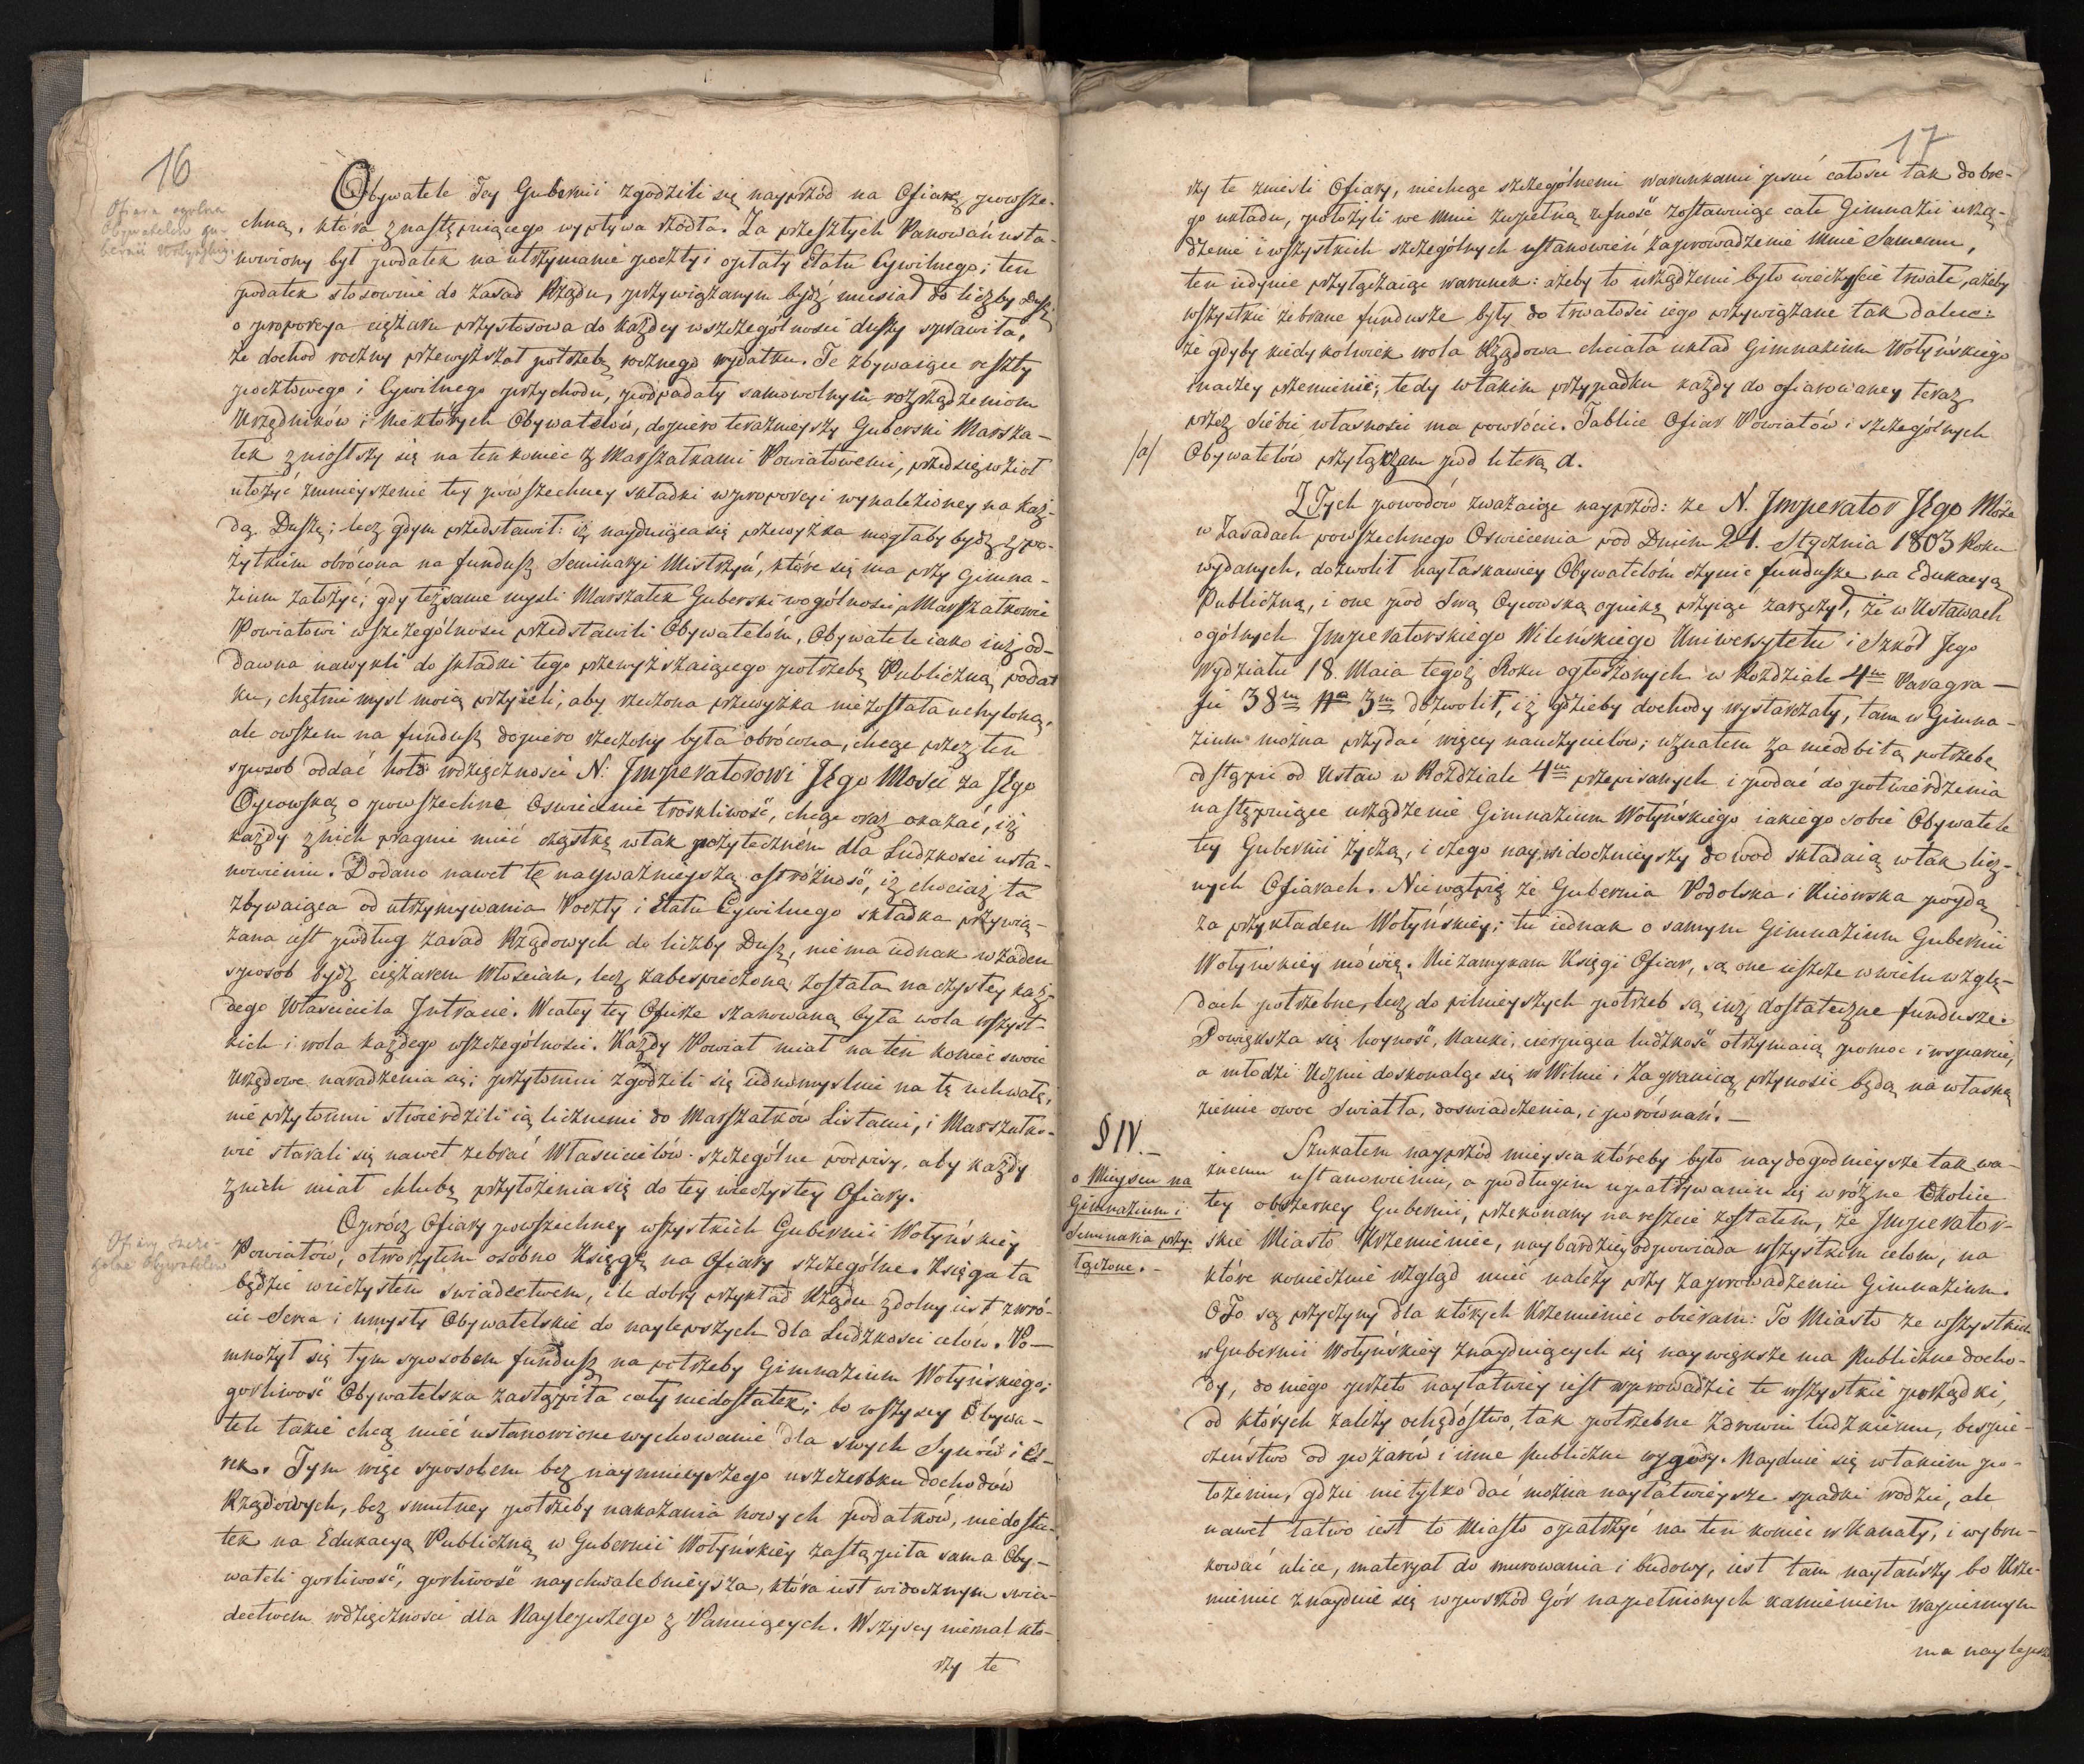 16
Ofiara ogolna
Obywatelow gu-
bernii Wołyńskiej.
Obywatele Tey Gubernii zgodzili się nayprzód na Ofiarę powsze-
chną, która z następuiącego wypływa źrodła. Za przeszłych Panowań usta-
nowiony był podatek na utrzymanie poczty i opłaty Etatu Cywilnego; ten
podatek stosownie do zasad Rządu, przywiązanym bydź musiał do liczby Dusz,
a proporcya ciężaru przystosowa do każdey w szczególności duszy sprawiła,
że dochod roczny przewyższał potrzebę rocznego wydatku. Te zbywaiące reszty
pocztowego i Cywilnego przychodu, podpadały samowolnym rozrządzeniom
Urzędników i Niektórych Obywatelów, dopiero teraźnieyszy Guberski Marsza-
łek zniosłszy się na ten koniec z Marszałkami Powiatowemi, przedsięwzioł
ułożyć zmnieyszenie tey powszechney składki w proporcyi wynalezioney na każ-
dą Duszę; lecz gdym przedstawił: iż nayduiąca się przewyżka mogłaby bydź z po-
żytkiem obrócona na fundusz Seminaryi Mistrzyń, które się ma przy Gimna-
zium założyć; gdy też same mysli Marszałek Guberski w ogólności, Marszałkowie
Powiatowi w szczególności przedstawili Obywatelóm, Obywatele iako iuż od-
dawna nawykli do składki tego przewyższaiącego potrzebę Publiczną podat
ku, chętnie mysl moią przyieli, aby rzeczona przewyżka nie została uchyloną,
ale owszem na fundusz dopiero rzeczony była obrócona, chcąc przez ten
sposob oddać hołd wdzięczności N: Imperatorowi Jego Mości za Jego
Oycowską o powszechne Oswiecenie troskliwość, chcąc oraz okazać, iż
każdy z nich pragnie mieć cząstkę w tak pożytecznem dla Ludzkości usta-
nowieniu. Dodano nawet tę nayważnieyszą ostróżność, iż chociaż ta
zbywaiąca od utrzymywania Poczty i Etatu Cywilnego składka przywią-
zana iest podług zasad Rządowych do liczby Dusz, nie ma iednak w żaden
sposób bydź ciężarem Włościan, lecz zabespieczoną została na czystey każ-
dego Właściciela Intracie. W całey tey Ofierze szanowaną była wola wszyst-
kich i wola każdego w szczególności. Każdy Powiat miał na ten koniec swoie
Urzędowe naradzenia się; przytomni zgodzili się iednomyslnie na tę uchwałę,
nie przytomni stwierdzili ią licznemi do Marszałków Listami, i Marszałko-
wie starali się nawet zebrać Właścicielów szczególne podpisy, aby każdy
z nich miał chlubę przyłożenia się do tey wieczystey Ofiary.
Ofiary szcze-
gólne Obywatelów
Oprócz Ofiary powszechney wszystkich Gubernii Wołyńskiey
Powiatów, otworzyłem osobno Księgę na Ofiary szczególne. Księga ta
będzie wieczystem swiadectwem, ile dobry przykład Rządu zdolny iest zwró-
cić Serca i umysły Obywatelskie do naylepszych dla Ludzkości celów. Po-
mnożył się tym sposobem fundusz na potrzeby Gimnazium Wołyńskiego;
gorliwość Obywatelska zastąpiła cały niedostatek; bo wszyscy Obywa-
tele takie chcą mieć ustanowione wychowanie dla swych Synów i Có-
rek. Tym więc sposobem bez naymnieyszego uszczerbku dochodów
Rządowych, bez smutney potrzeby nakazania nowych podatków, niedosta-
tek na Edukacyą Publiczną w Gubernii Wołyńskiey zastąpiła sama Oby-
wateli gorliwość, gorliwość naychwalebnieysza, która iest widocznym swia-
dectwem wdzięczności dla Naylepszego z Panuiących. Wszyscy niemal któ-
rzy te
17
rzy te znieśli Ofiary, niechcąc szczególnemi warunkami psuć całości tak dobre-
go układu, położyli we mnie zupełną ufność zostawuiąc całe Gimnazii urzą-
dzenie i wszystkich szczególnych ustanowień zaprowadzenie mnie Samemu,
ten iedynie przyłączaiąc warunek: ażeby to urządzenie było wieczyście trwałe, ażeby
wszystkie zebrane fundusze były do trwałości iego przywiązane tak dalece:
że gdyby kiedykolwiek wola Rządowa chciała układ Gimnazium Wołyńskiego
inaczey przemienić, tedy w takim przypadku każdy do ofiarowaney teraz
przez siebie własności ma powrócić. Tablice Ofiar Powiatów i szczególnych
/a/ Obywatelów przyłączam pod literą a.
Z Tych powodów zważaiąc nayprzód: że N. Imperator Jego Mość
w Zasadach powszechnego Oswiecenia pod Dniem 21. Stycznia 1803 Roku
wydanych, dozwolił nayłaskawiey Obywatelóm czynić fundusze na Edukacyą
Publiczną, i one pod swą Oycowską opiekę przyiąć zaręczył, że w Ustawach
ogólnych Imperatorskiego Wileńskiego Uniwersytetu i Szkód Jego
Wydziału 18. Maia tegoż Roku ogłoszonych w Rozdziale 4m Paragra-
fie 38m 3m dozwolił, iż gdzieby dochody wystarczały, tam w Gimna-
zium można przydać więcey nauczycielów; uznałem za nieodbitą potrzebę
odstąpić od Ustaw w Rozdziale 4m przepisanych i podać do potwierdzenia
następuiące urządzenie Gimnazium Wołyńskiego iakiego sobie Obywatele
tey Gubernii życzą, i czego naywidocznieyszy dowod składaią w tak licz-
nych Ofiarach. Nie wątpię że Gubernia Podolska i Kiiowska poydą
za przykładem Wołyńskiey; tu iednak o samym Gimnazium Gubernii
Wołyńskiey mówię. Nie zamykam Księgi Ofiar, są one ieszcze w wielu wzglę-
dach potrzebne, lecz do pilnieyszych potrzeb są iuż dostateczne fundusze.
Powiększa się hoyność, Nauki, cierpiąca ludzkość otrzymaią pomoc i wsparcie,
a młodzi Ucznie doskonaląc się w Wilnie i Zagranicą przynosić będą na własną
ziemie owoc Swiatła, doswiadczenia, i porównań. —
§ IV. —
o Mieyscu na
Gimnazium i
Seminaria przy-
łączone. —
Szukałem nayprzód mieysca któreby było naydogodnieysze tak wa-
żnemu ustanowieniu, a po długim upatrywaniu się w różne Okolice
tey obszerney Gubernii, przekonany nareszcie zostałem, że Imperator-
skie Miasto Krzemieniec, naybardziey odpowiada wszystkim celom, na
które koniecznie wzgląd mieć należy przy zaprowadzeniu Gimnazium.
Oto są przyczyny dla których Krzemieniec obieram: To Miasto ze wszystkich
w Gubernii Wołyńskiey znayduiących się naywiększe ma Publiczne docho-
dy, do niego przeto nayłatwiey iest wprowadzić te wszystkie porządki,
od których zależy ochędóstwo, tak potrzebne zdrowiu ludzkiemu, bespie-
czeństwo od pożarów i inne publiczne wygody. Nayduie się w takim po-
łożeniu, gdzie nie tylko dać można nayłatwieysze spadki wodzie, ale
nawet łatwo iest to Miasto opatrzyć na ten koniec w Kanały, i wybru-
kować ulice, materyał do murowania i budowy, iest tam naytańszy bo Krze-
mieniec znayduie się w pośrzód Gór napełnionych kamieniem wapiennym
ma naylepsz